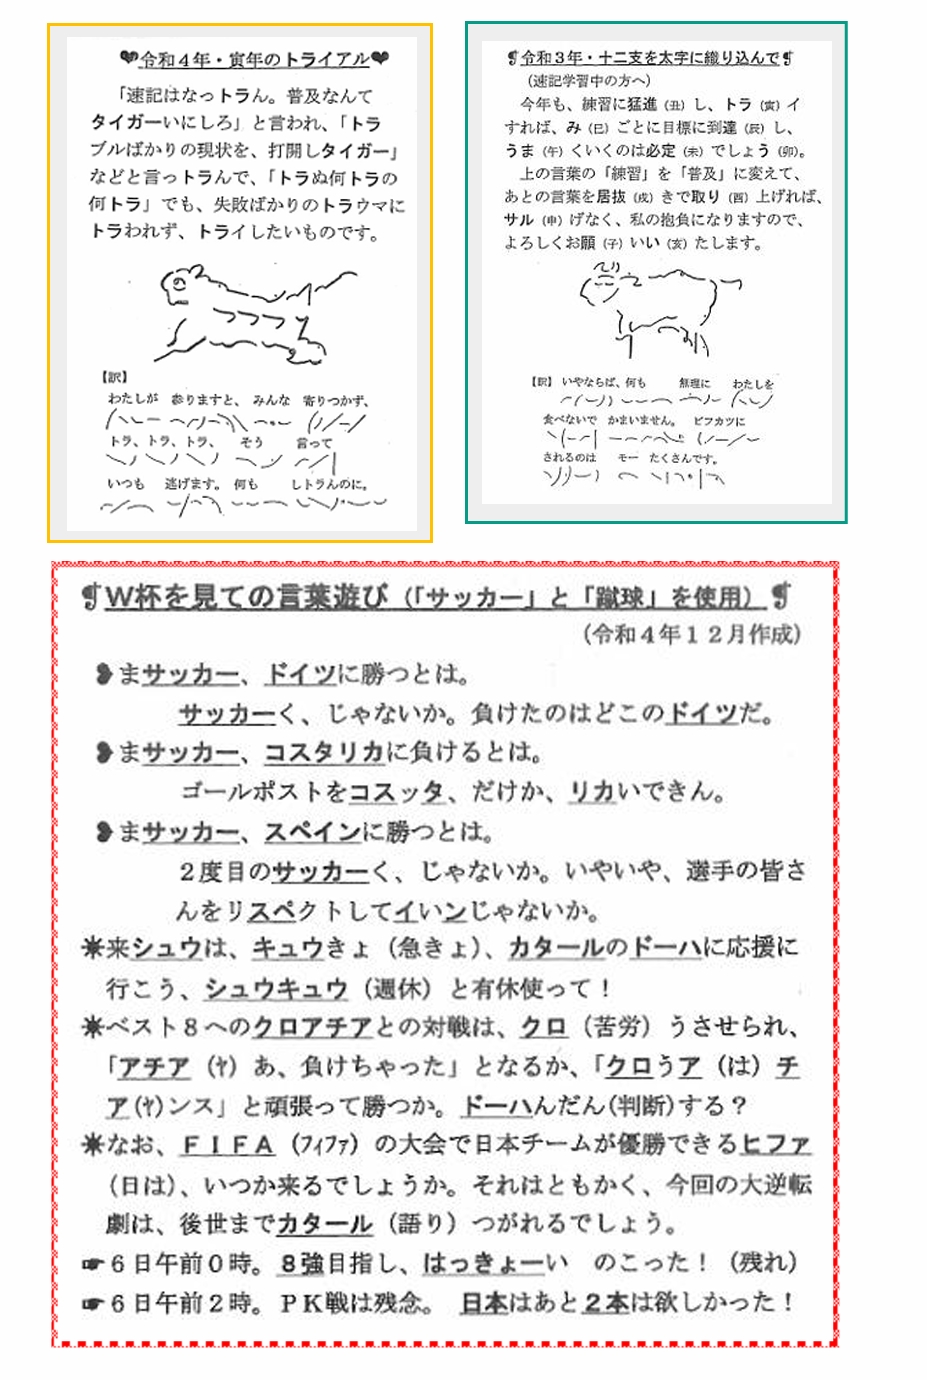 ❤令和４年・寅年のトライアル❤
「速記はなっトラん。普及なんて
タイガーいにしろ」と言われ、「トラ
ブルばかりの現状を、打開しタイガー」
などと言っトラんで、「トラぬ何トラの
何トラ」でも、失敗ばかりのトラウマに
トラわれず、トライしたいものです。
【訳】
わたしが　参りますと、　みんな　寄りつかず、
トラ、トラ、トラ、　そう　言って
いつも　逃げます。　何も　しトラんのに。
❡令和３年・十二支を太字に織り込んで❡
（速記学習中の方へ）
今年も、練習に猛進（丑）し、トラ（寅）イ
すれば、み（巳）ごとに目標に到達（辰）し、
うま（午）くいくのは必定（未）でしょう（卯）。
上の言葉の「練習」を「普及」に変えて、
あとの言葉を居抜（戌）きで取り（酉）上げれば、
サル（申）げなく、私の抱負になりますので、
よろしくお願（子）いい（亥）たします。
【訳】　いやならば、何も　無理に　わたしを
食べないで　かまいません。　ビフカツに
されるのは　モー　たくさんです。
❡Ｗ杯を見ての言葉遊び（「サッカー」と「蹴球」を使用）❡
（令和４年１２月作成）
❥まサッカー、ドイツに勝つとは。
サッカーく、じゃないか。負けたのはどこのドイツだ。
❥まサッカー、コスタリカに負けるとは。
ゴールポストをコスッタ、だけか、リカいできん。
❥まサッカー、スペインに勝つとは。
２度目のサッカーく、じゃないか。いやいや、選手の皆さ
んをリスペクトしてイいンじゃないか。
☀来シュウは、キュウきょ（急きょ）、カタールのドーハに応援に
行こう、シュウキュウ（週休）と有休使って！
☀ベスト８へのクロアチアとの対戦は、クロ（苦労）うさせられ、
「アチア（ﾔ）あ、負けちゃった」となるか、「クロうア（は）チ
ア(ﾔ)ンス」と頑張って勝つか。ドーハんだん(判断)する？
☀なお、ＦＩＦＡ（ﾌｨﾌｧ）の大会で日本チームが優勝できるヒファ
（日は）、いつか来るでしょうか。それはともかく、今回の大逆転
劇は、後世までカタール（語り）つがれるでしょう。
☛６日午前０時。８強目指し、はっきょーい　のこった！（残れ）
☛６日午前２時。ＰＫ戦は残念。　日本はあと２本は欲しかった！